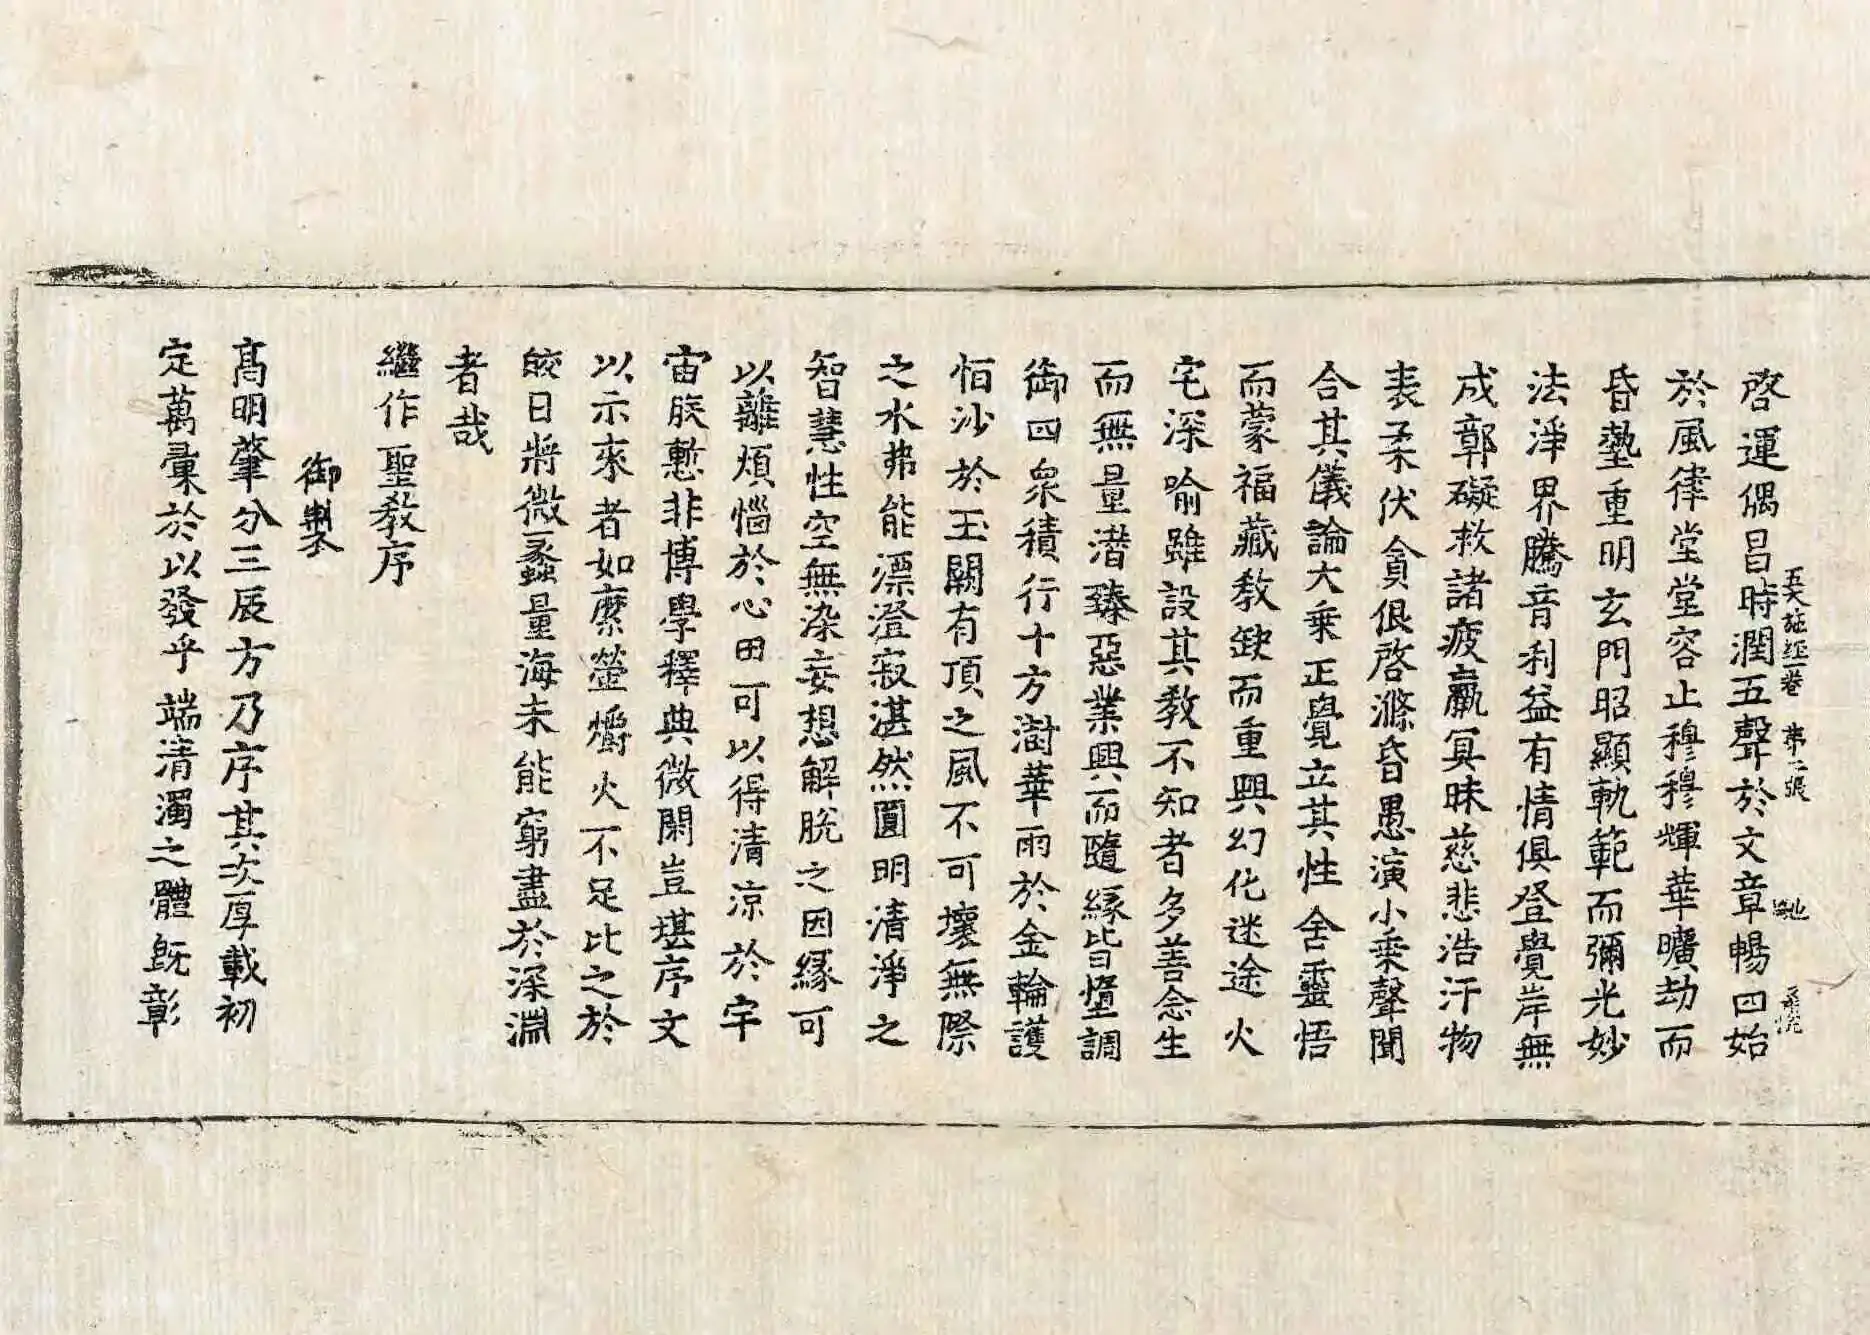 啓運偶昌時潤五聲於文章暢四始
於風律堂堂容止穆穆輝華曠劫而
昏墊重明玄門昭顯軌範而彌光妙
法淨界騰音利益有情俱登覺岸無
成鄣礙救諸疲羸冥昧慈悲浩汗物
表柔伏貪佷啓滌昏愚演小乘聲聞
合其儀論大乘正覺立其性含靈悟
而蒙福藏教缺而重興幻化迷途火
宅深喻雖設其教不知者多善念生
而無量潛臻惡業興而隨緣皆墮調
御四衆積行十方澍華雨於金輪護
恒沙於玉闕有頂之風不可壞無際
之水弗能漂澄寂湛然圓明清淨之
智慧性空無染妄想解脫之因緣可
以離煩惱於心田可以得清凉於宇
宙朕慙非博學釋典微閑豈堪序文
以示來者如縻螢爝火不足比之於
皎日將微蠡量海未能窮盡於深淵
者哉
繼作聖教序
御製
髙明肇分三辰方乃序其次厚載初
定萬彙於以發乎端清濁之體旣彰